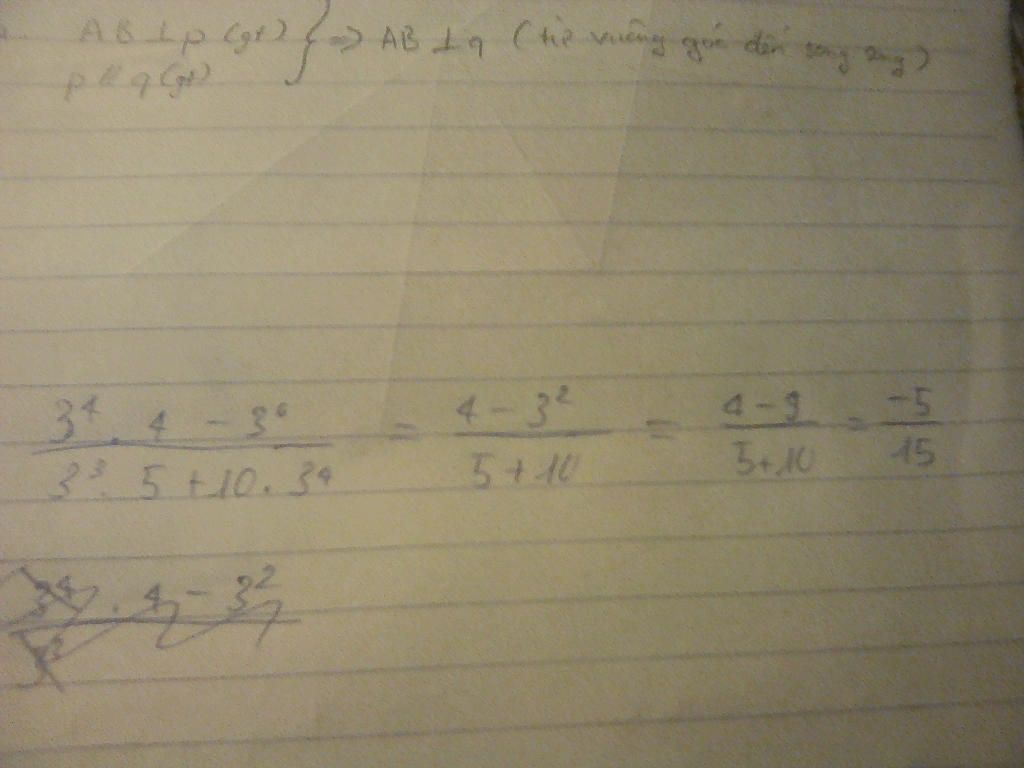 AB ⊥ p (gt) } => AB ⊥ q (từ vuông góc đến song song)
p // q (gt)
3⁴ . 4 - 3⁶ / 3³ . 5 + 10 . 3⁴ = 4 - 3² / 5 + 10 = 4 - 9 / 5 + 10 = -5 / 15
3⁴ . 4 - 3²